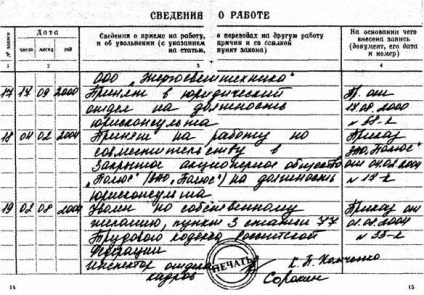 СВЕДЕНИЯ О РАБОТЕ
№ записи
Дата
число месяц год
Сведения о приеме на работу, о переводах на другую работу
и об увольнении (с указанием причин и со ссылкой
на статью, пункт закона)
На основании чего
внесена запись
(документ, его дата
и номер)
1 2 3 4
ООО „Энергосвязьтехника"
17 17 09 2000 Принят в юридический Пр. от
отдел на должность 17.08.2000
юрисконсульта
18 04 02 2004 Принят на работу по Приказ
совместительству в ЗАО „Полюс"
Закрытое акционерное общество от 04.02.2004
„Полюс" (ЗАО „Полюс") на должность
юрисконсульта
19 02 08 2004 Уволен по собственному Приказ от
желанию, пункт 3 статьи 77 01.08.2004
Трудового кодекса Российской № 35-к
Федерации
Инспектор отдела
кадров
ПЕЧАТЬ
Сорокин
14 15